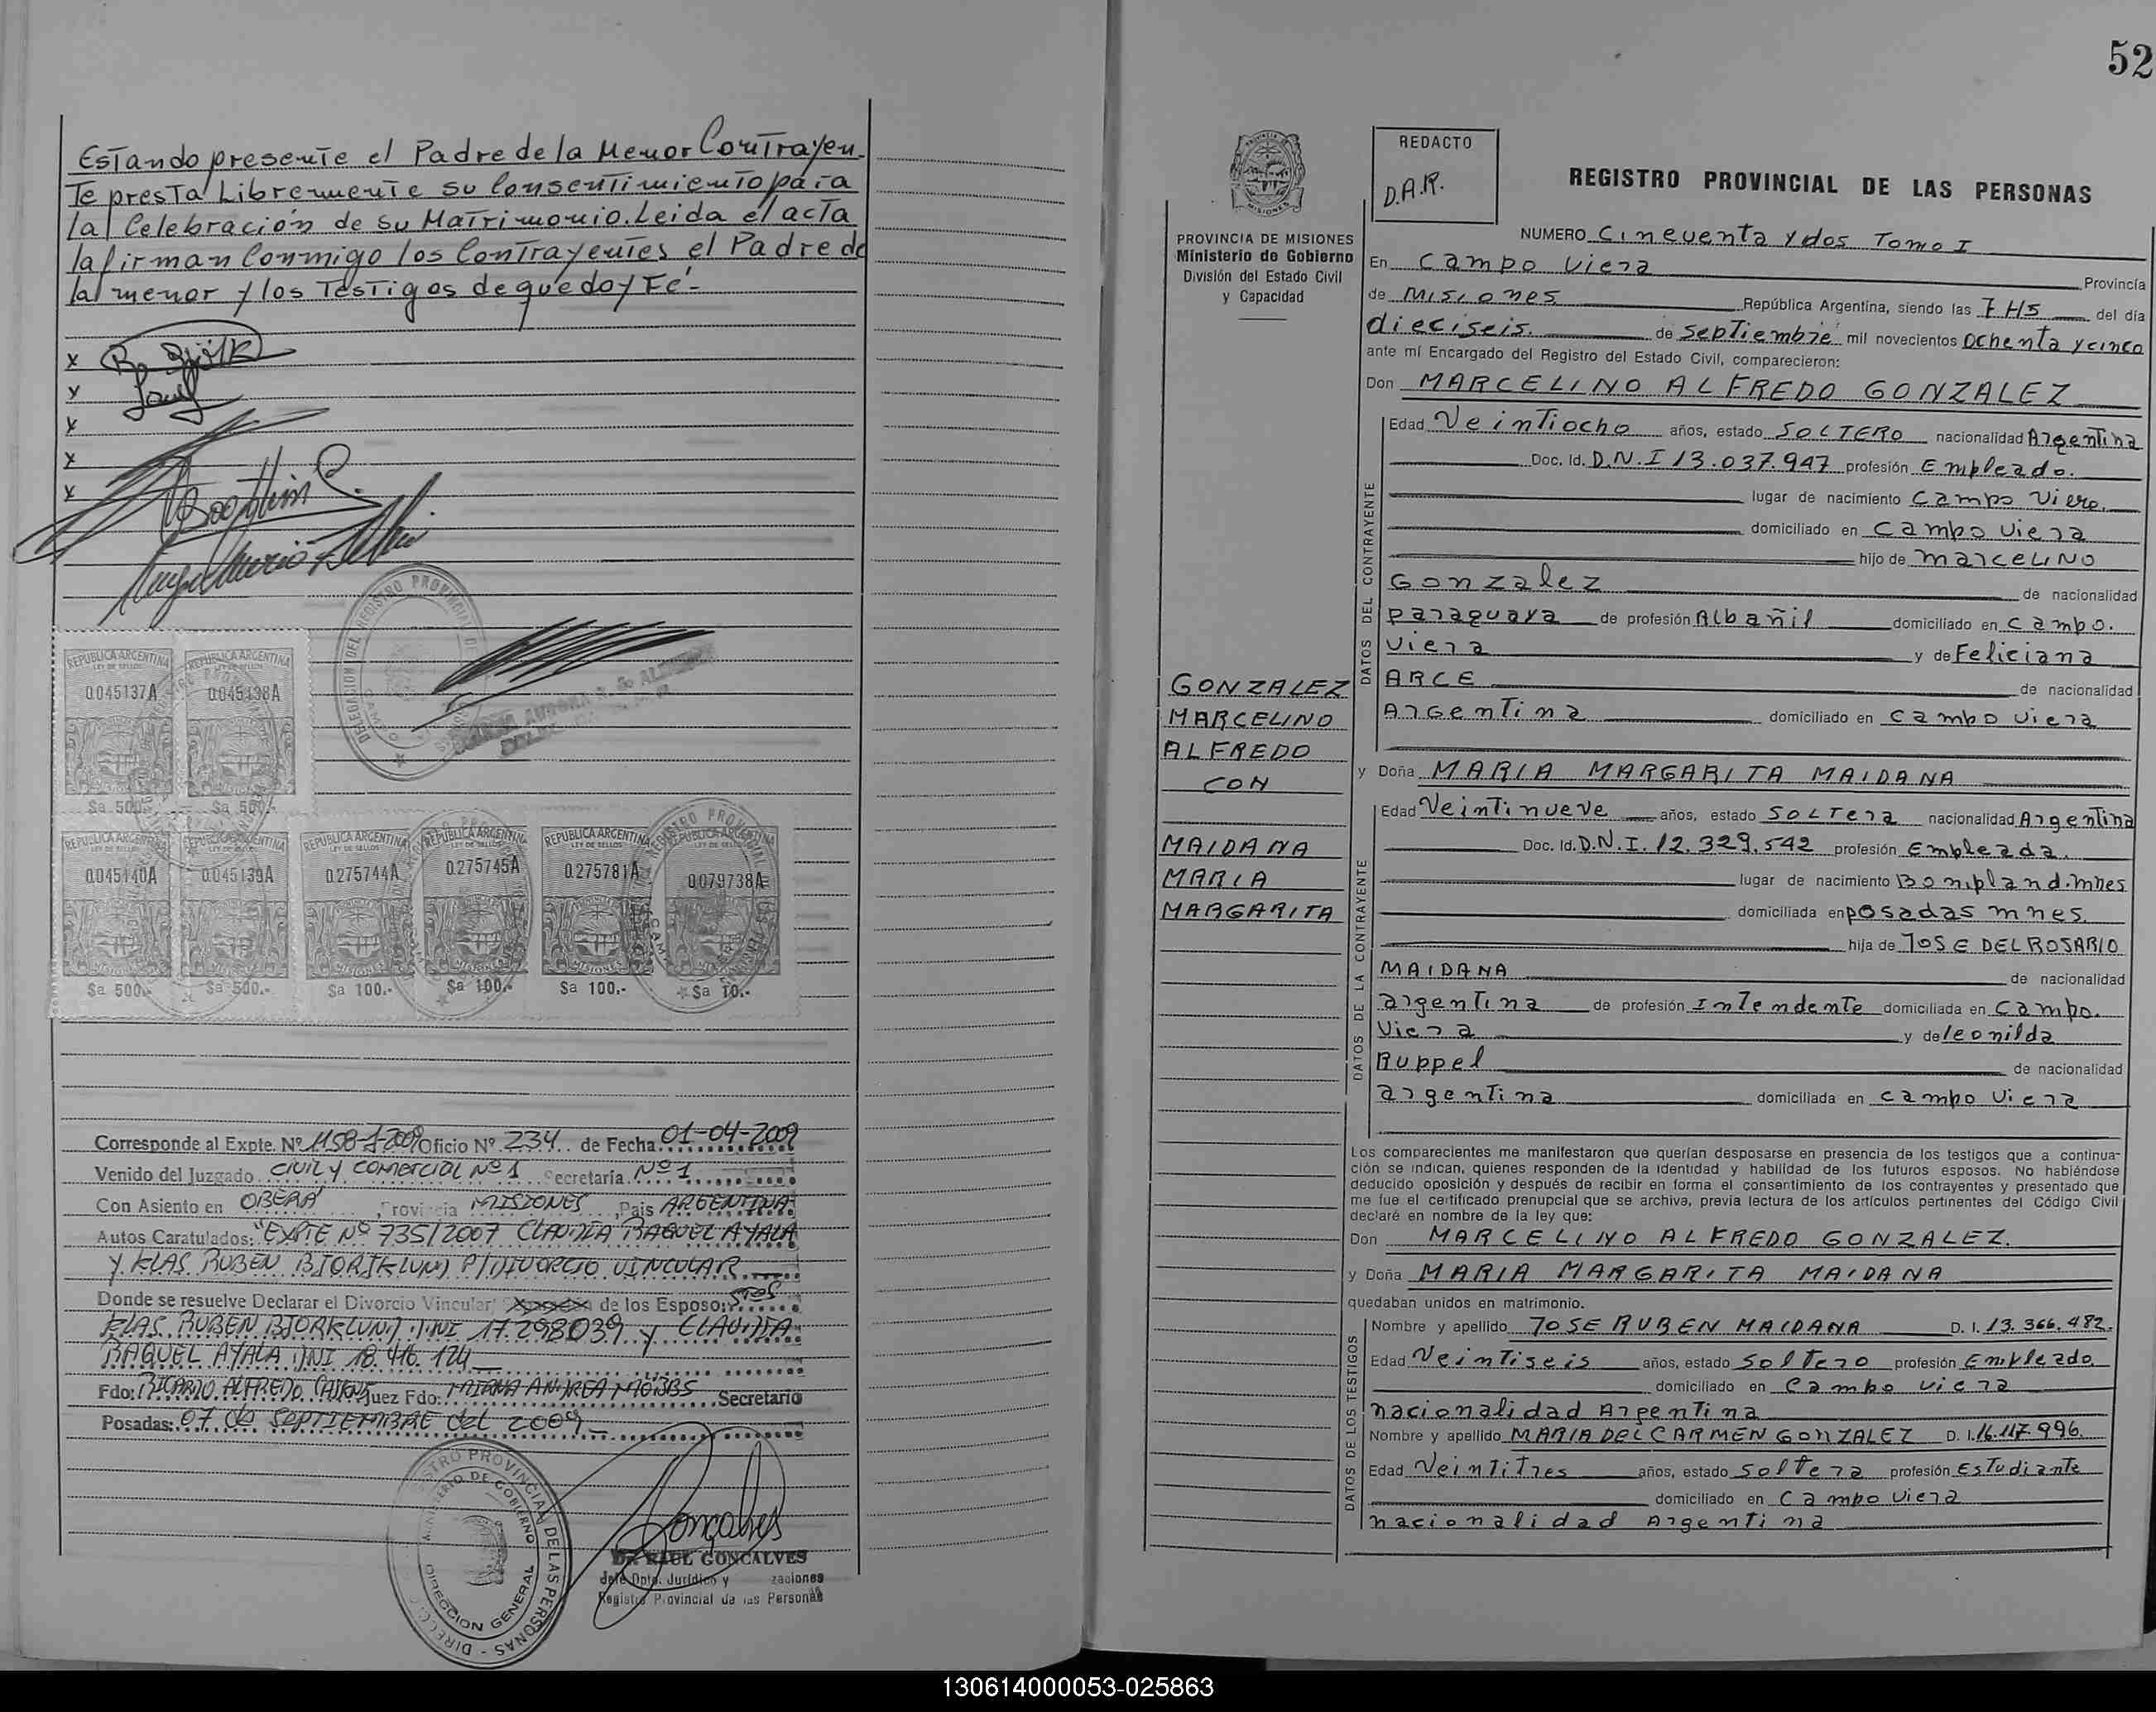 Estando presente el Padre de la Menor Contrayen-
Te presta Libremente su Consentimiento para
la Celebración de su Matrimonio. Leida el acta
la firman Conmigo los Contrayentes el Padre de
la menor y los Testigos de que doy Fé-
x
x
x
x
x
DELEGACION DEL REGISTRO PROVINCIAL DE
REPUBLICA ARGENTINA
LEY DE SELLOS
0.045137A
$a 500.-
REPUBLICA ARGENTINA
LEY DE SELLOS
0.045138A
$a 500.-
REPUBLICA ARGENTINA
LEY DE SELLOS
0.045140A
MISIONES
$a 500.-
REPUBLICA ARGENTINA
LEY DE SELLOS
0.045139A
MISIONES
$a 500.-
REPUBLICA ARGENTINA
LEY DE SELLOS
0.275744A
MISIONES
$a 100.-
REPUBLICA ARGENTINA
LEY DE SELLOS
0.275745A
MISIONES
$a 100.-
REPUBLICA ARGENTINA
LEY DE SELLOS
0.275781A
MISIONES
$a 100.-
REPUBLICA ARGENTINA
LEY DE SELLOS
0.079738A
$a 10.-
Corresponde al Expte. Nº 1158-J-2009 Oficio Nº 234 de Fecha 01-04-2009
Venido del Juzgado CIVIL Y COMERCIAL Nº 1 Secretaría Nº 1
Con Asiento en OBERA, Provincia MISIONES, Pais ARGENTINA
Autos Caratulados: "EXPTE Nº 735/2007 CLAUDIA RAQUEL AYALA
Y KLAS RUBEN BJORKLUND P/DIVORCIO VINCULAR
Donde se resuelve Declarar el Divorcio Vincular, de los Esposos: SRES
KLAS RUBEN BJORKLUND DNI 17.298.039 Y CLAUDIA
RAQUEL AYALA DNI 18.416.124
Fdo: RICARDO ALFREDO Juez Fdo: ANDREA MOBBS Secretario
Posadas: 07 de SEPTIEMBRE del 2009
REGISTRO PROVINCIAL DE LAS PERSONAS
MINISTERIO DE GOBIERNO
DIRECCION GENERAL
Gonçalves
Dr. RAUL GONCALVES
Jefe Dpto. Jurídico y
Registro Provincial de las Personas
52
PROVINCIA DE MISIONES
Ministerio de Gobierno
División del Estado Civil
y Capacidad
REDACTO
D.A.R.
REGISTRO PROVINCIAL DE LAS PERSONAS
NUMERO Cincuenta y dos Tomo I
En Campo Viera Provincia
de Misiones República Argentina, siendo las 7 HS del día
dieciseis de septiembre mil novecientos ochenta y cinco
ante mí Encargado del Registro del Estado Civil, comparecieron:
Don MARCELINO ALFREDO GONZALEZ
DATOS DEL CONTRAYENTE
Edad Veintiocho años, estado SOLTERO nacionalidad Argentina
Doc. Id. D.N.I 13.037.947 profesión Empleado.
lugar de nacimiento Campo Viera.
domiciliado en Campo Viera
hijo de MARCELINO
Gonzalez de nacionalidad
paraguaya de profesión Albañil domiciliado en Campo.
Viera y de Feliciana
ARCE de nacionalidad
Argentina domiciliado en Campo Viera
GONZALEZ
MARCELINO
ALFREDO
CON
MAIDANA
MARIA
MARGARITA
y Doña MARIA MARGARITA MAIDANA
DATOS DE LA CONTRAYENTE
Edad Veintinueve años, estado SOLTERA nacionalidad Argentina
Doc. Id. D.N.I. 12.329.542 profesión Empleada.
lugar de nacimiento Bonpland. Mnes
domiciliada en posadas mnes.
hija de JOSE DEL ROSARIO
MAIDANA de nacionalidad
argentina de profesión Intendente domiciliada en Campo.
Viera y de leonilda
Ruppel de nacionalidad
argentina domiciliada en campo Viera
Los comparecientes me manifestaron que querían desposarse en presencia de los testigos que a continua-
ción se indican, quienes responden de la identidad y habilidad de los futuros esposos. No habiéndose
deducido oposición y después de recibir en forma el consentimiento de los contrayentes y presentado que
me fue el certificado prenupcial que se archiva, previa lectura de los artículos pertinentes del Código Civil
declaré en nombre de la ley que:
Don MARCELINO ALFREDO GONZALEZ.
y Doña MARIA MARGARITA MAIDANA
quedaban unidos en matrimonio.
DATOS DE LOS TESTIGOS
Nombre y apellido JOSE RUBEN MAIDANA D. I. 13.366.482.
Edad Veintiseis años, estado soltero profesión Empleado.
domiciliado en Campo Viera
nacionalidad Argentina
Nombre y apellido MARIA DEL CARMEN GONZALEZ D. I. 16.117.996.
Edad Veintitres años, estado soltera profesión Estudiante
domiciliado en Campo Viera
nacionalidad Argentina
130614000053-025863